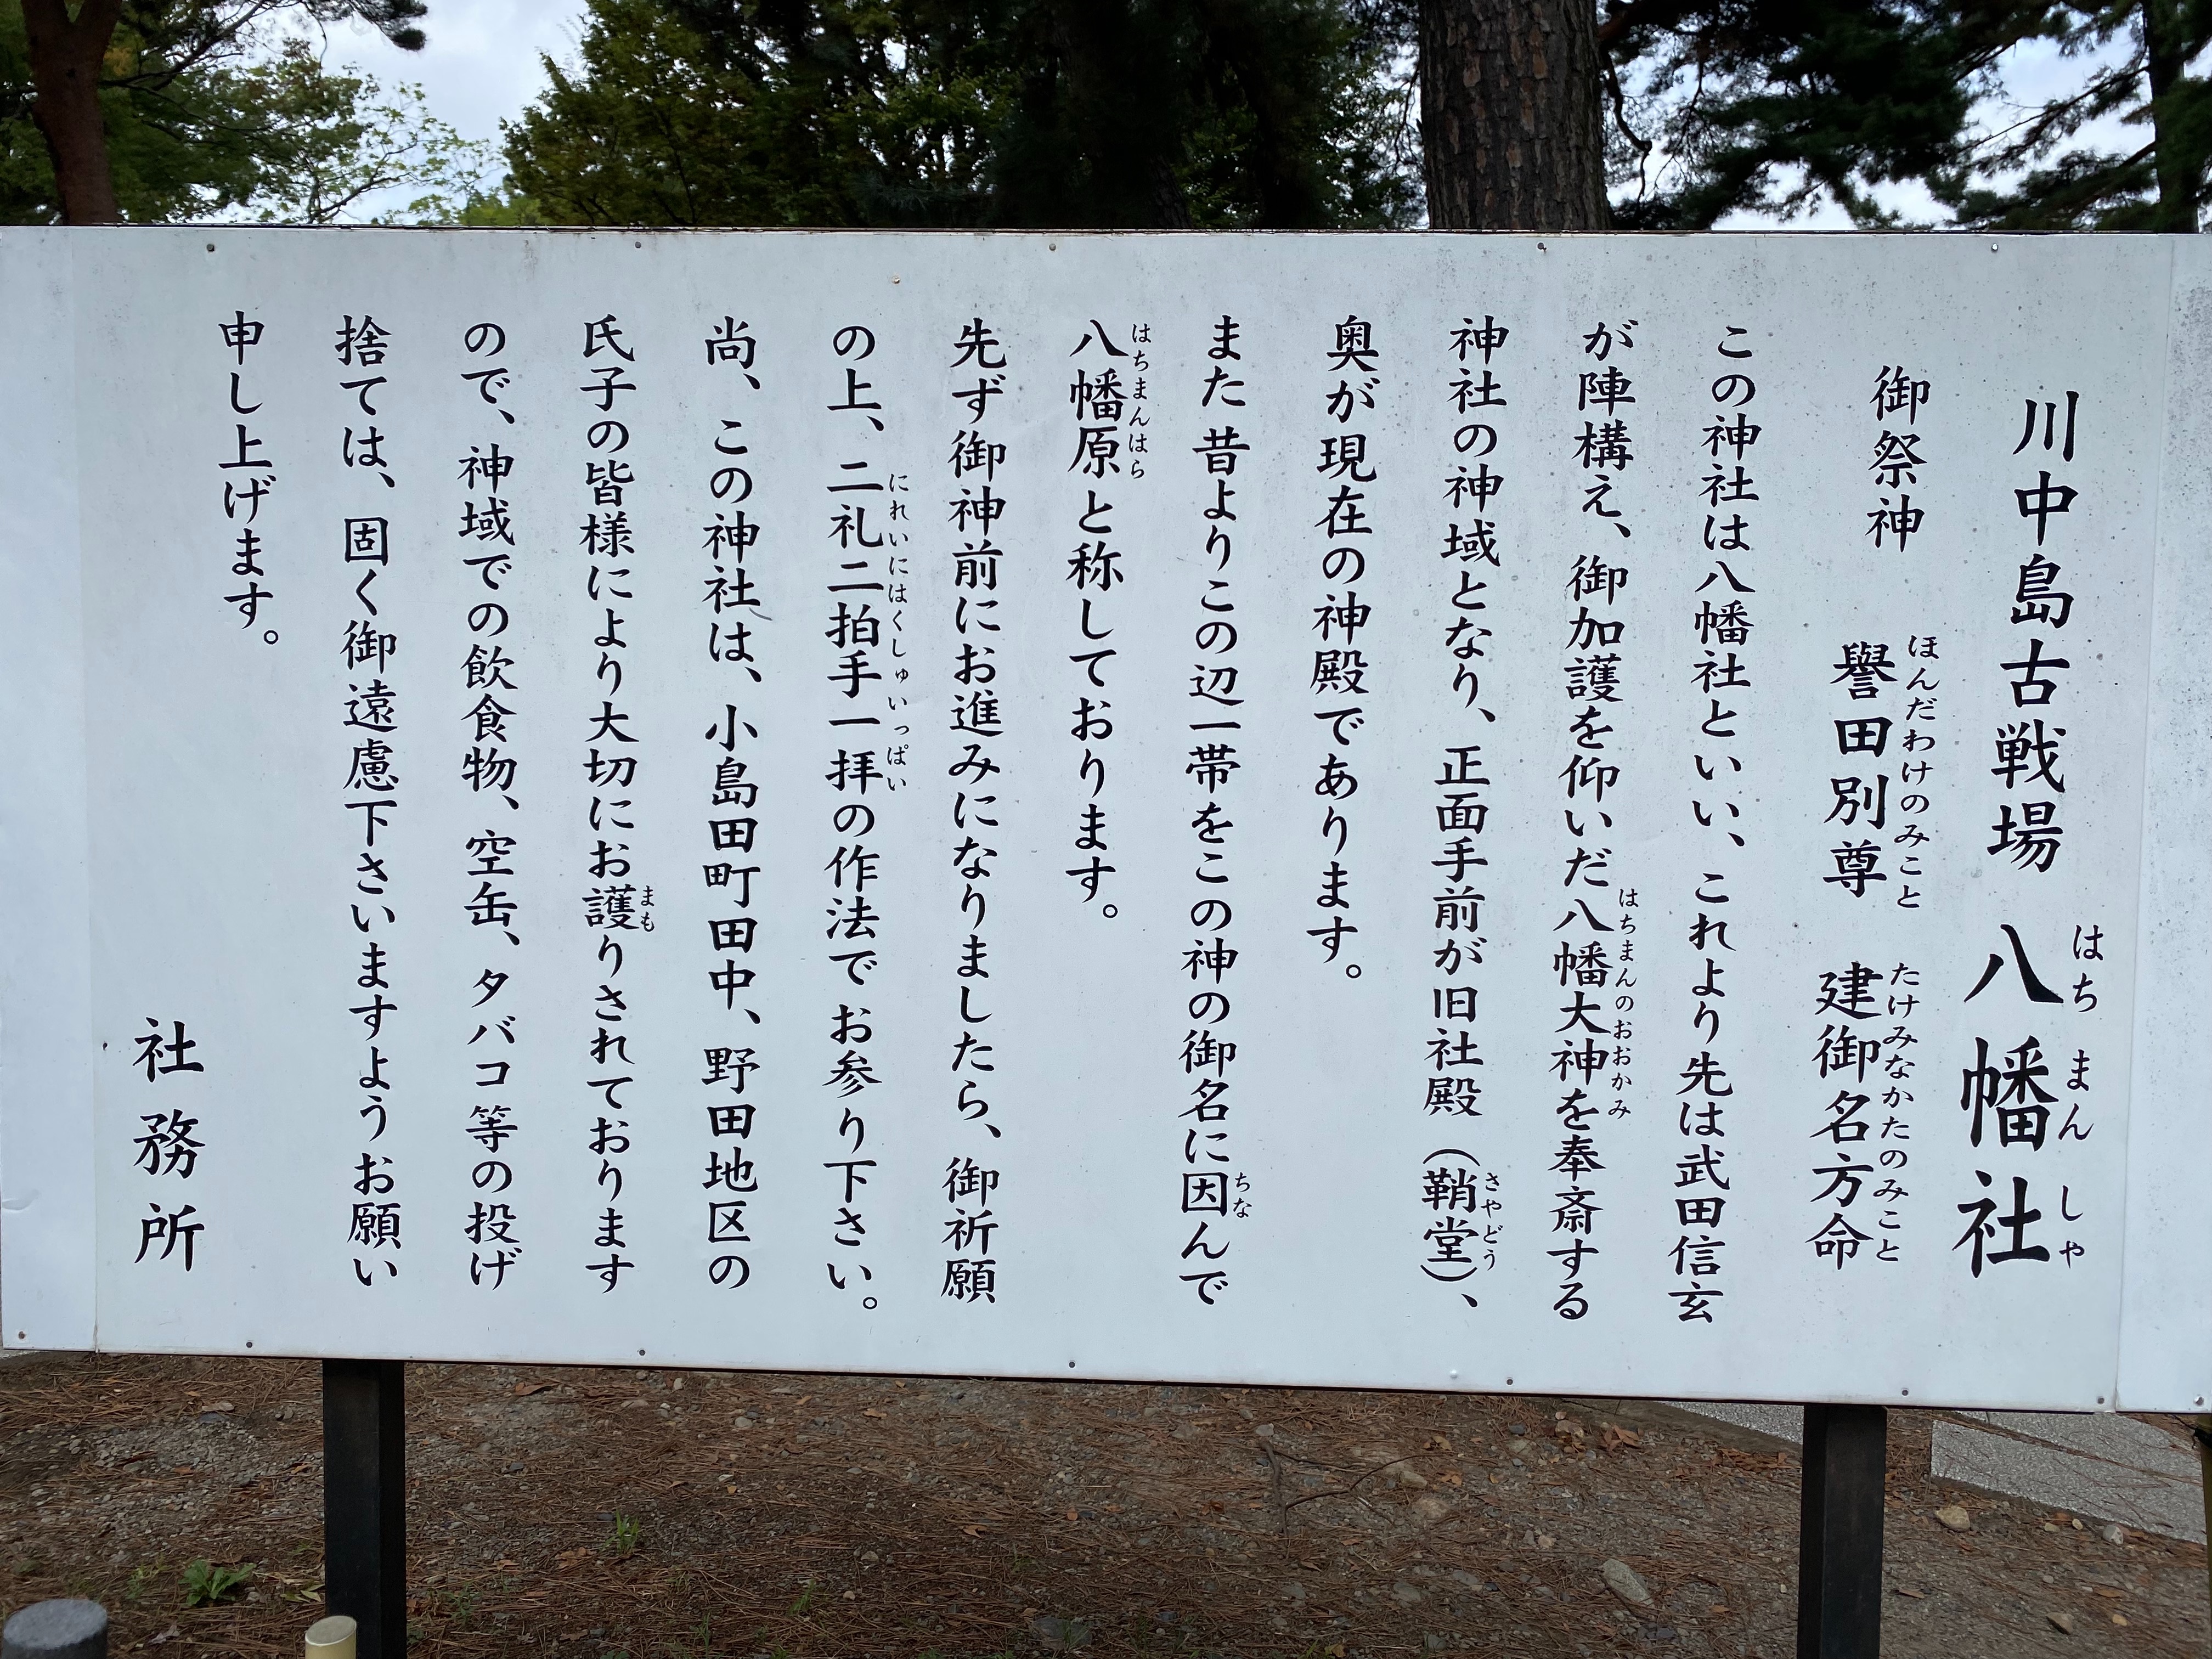 川中島古戦場 八幡社
はちまんしゃ
御祭神 譽田別尊 建御名方命
ほんだわけのみこと たけみなかたのみこと
この神社は八幡社といい、これより先は武田信玄
が陣構え、御加護を仰いだ八幡大神を奉斎する
はちまんのおおかみ
神社の神域となり、正面手前が旧社殿（鞘堂）、
さやどう
奥が現在の神殿であります。
また昔よりこの辺一帯をこの神の御名に因んで
ちな
八幡原と称しております。
はちまんはら
先ず御神前にお進みになりましたら、御祈願
の上、二礼二拍手一拝の作法でお参り下さい。
にれいにはくしゅいっぱい
尚、この神社は、小島田町田中、野田地区の
氏子の皆様により大切にお護りされております
まも
ので、神域での飲食物、空缶、タバコ等の投げ
捨ては、固く御遠慮下さいますようお願い
申し上げます。
社務所